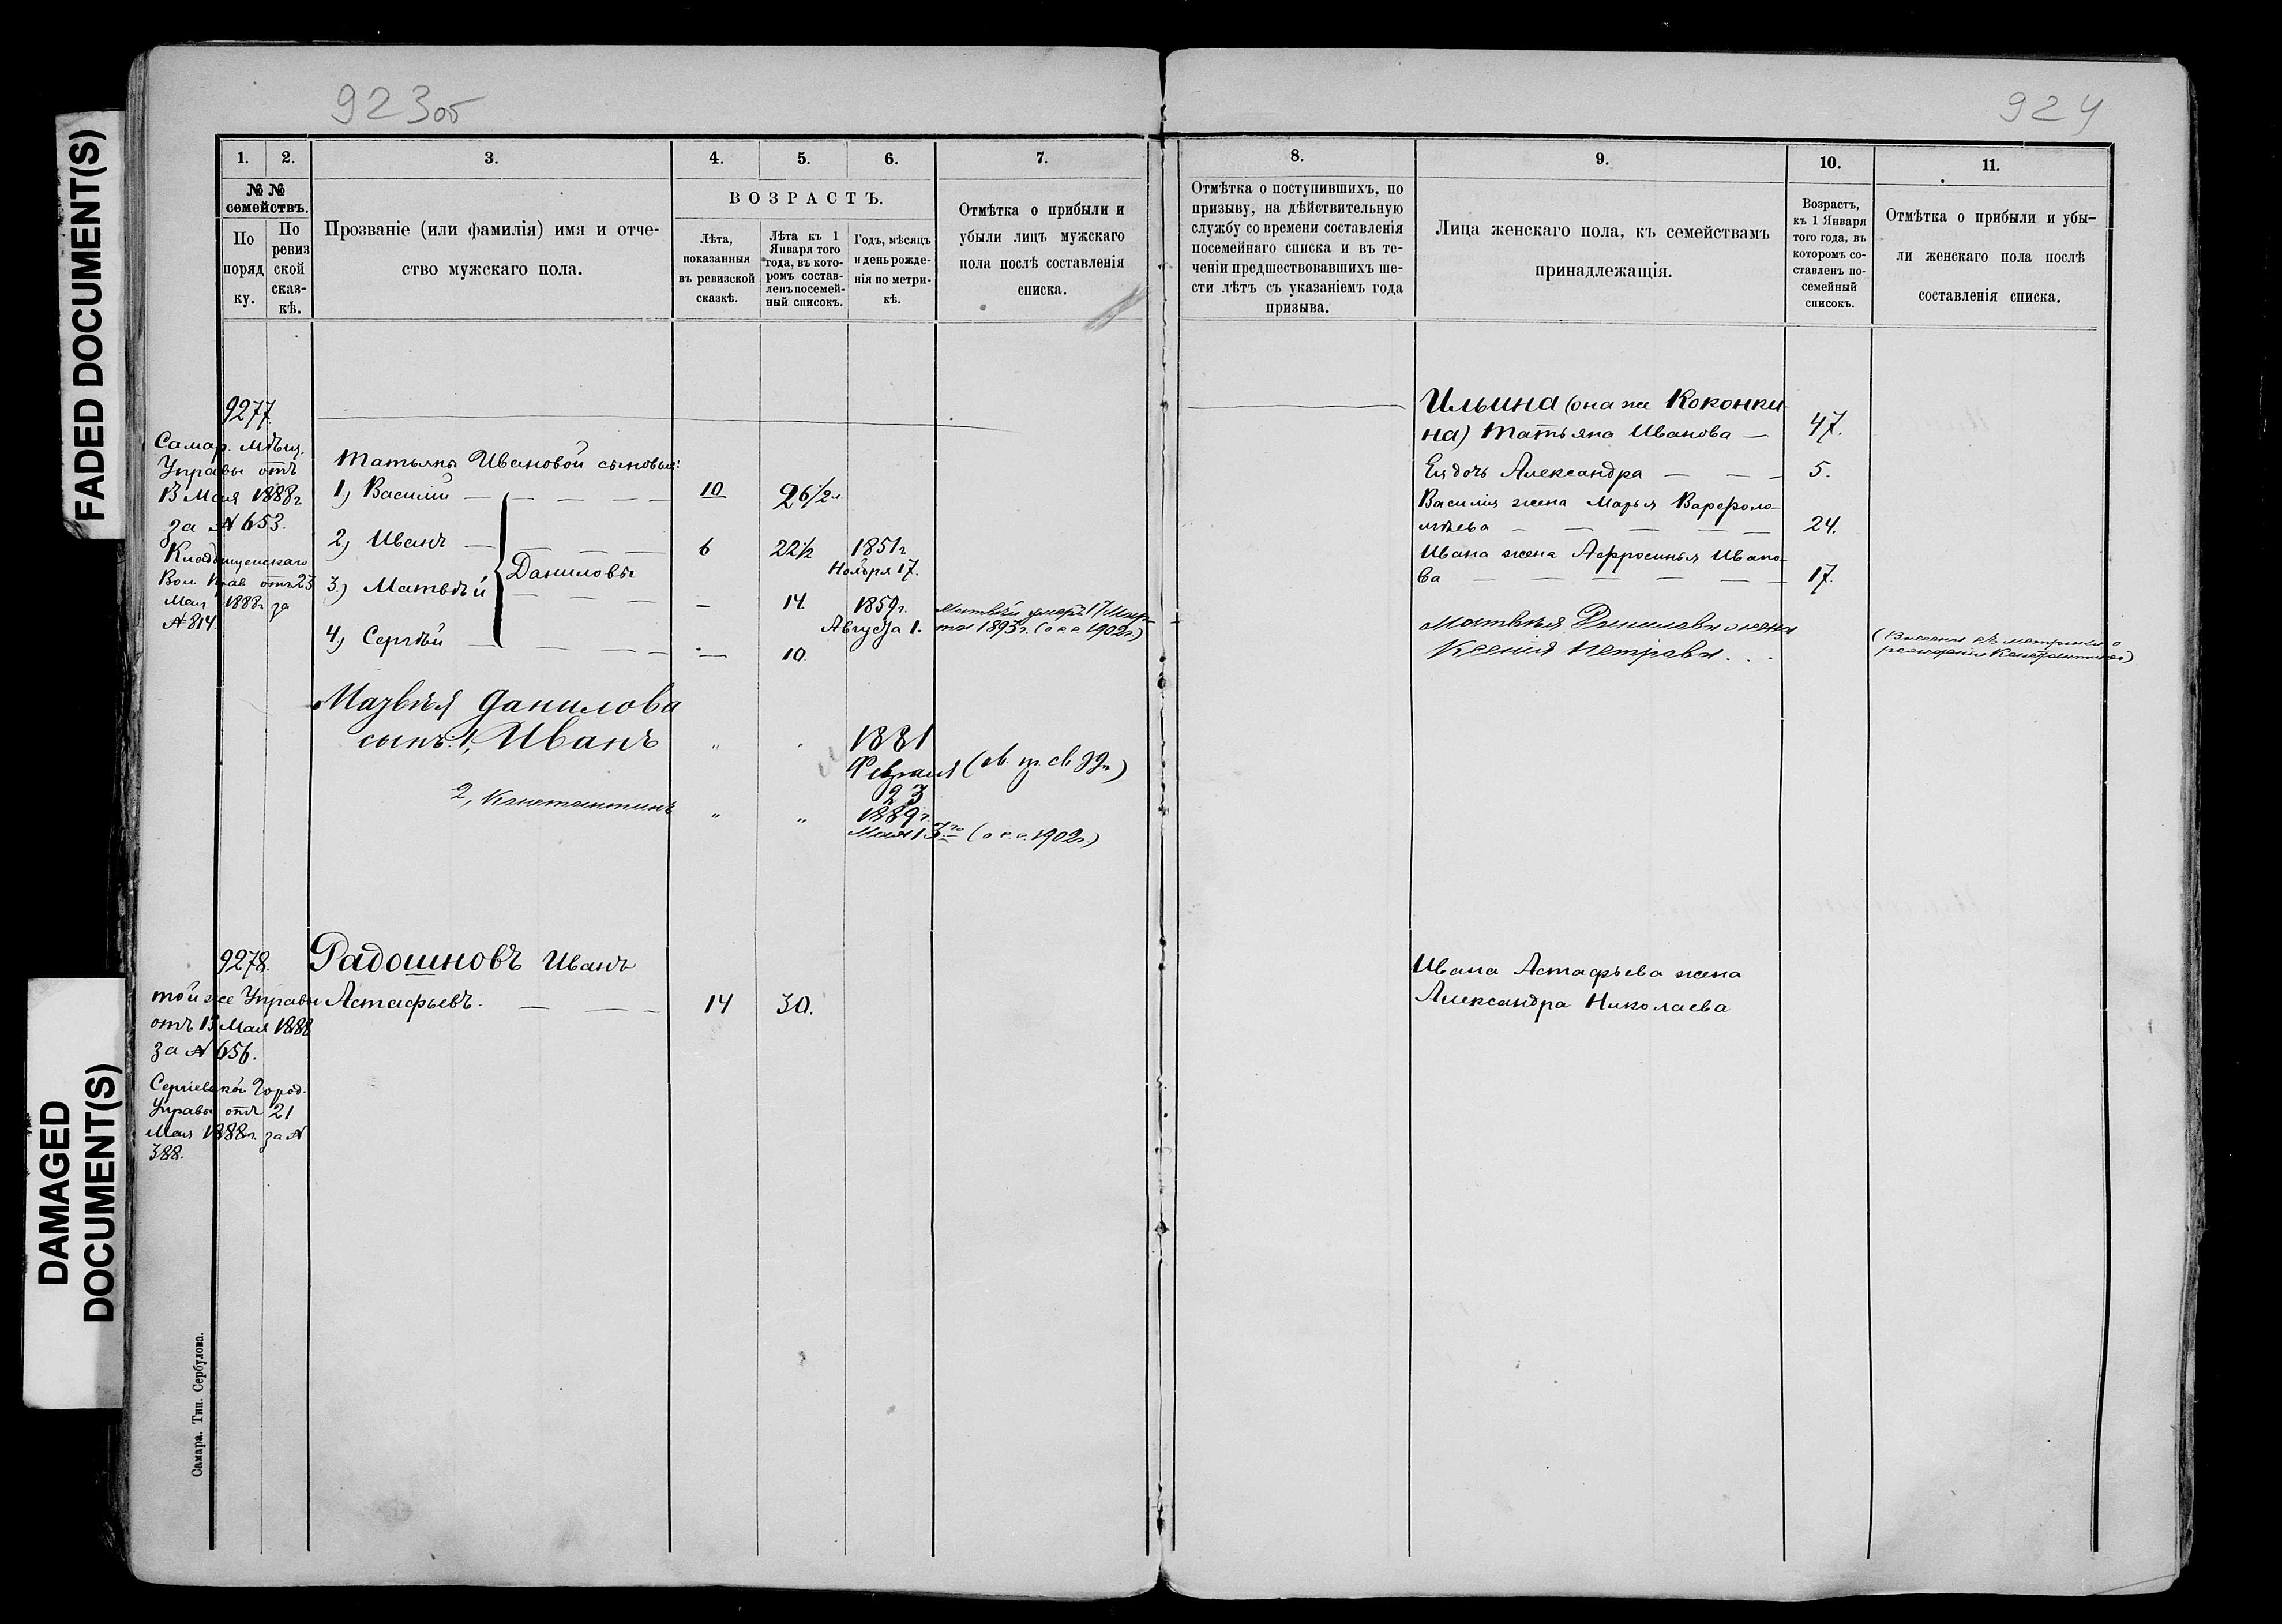 FADED DOCUMENT(S)
DAMAGED
DOCUMENT(S)
923об
1.
2.
3.
4.
5.
6.
7.
№ №
семействъ.
По
поряд
ку.
По
ревиз
ской
сказ-
кѣ.
Прозваніе (или фамилія) имя и отче-
ство мужскаго пола.
ВОЗРАСТЪ.
Лѣта,
показанныя
въ ревизской
сказкѣ.
Лѣта къ 1
Января того
года, въ кото-
ромъ состав-
ленъ посемей-
ный списокъ.
Годъ, мѣсяцъ
и день рожде-
нія по метри-
кѣ.
Отмѣтка о прибыли и
убыли лицъ мужскаго
пола послѣ составленія
списка.
9277.
Самар. Мѣщ.
Управы отъ
13 Мая 1888г
за № 653.
Вол. Прав отъ 23
Мая 1888г за
№ 814.
Татьяны Ивановой сыновья:
1) Василий
10
26 1/2 л.
2) Иванъ
6
22 1/2
1851г
Ноября 17.
Даниловы
3.) Матвѣй
14.
1859г.
Августа 1.
Матвѣй умеръ 17 Мар-
та 1893г. (о с.с. 1902г.)
4) Сергѣй
10.
Матвѣя Данилова
сынъ. 1, Иванъ
"
1881
Февраля
23
2, Константинъ
"
"
1889г.
Мая 13го (о с.с. 1902г.)
9278.
Радошновъ Иванъ
Астафьевъ.
14
30.
той же Управы
отъ 13 Мая 1888
за № 656.
Сергіевской Город.
Управы отъ 21
Мая 1888г. за №
388.
Самара. Тип. Сербулова.
924
8.
9.
10.
11.
Отмѣтка о поступившихъ, по
призыву, на дѣйствительную
службу со времени составленія
посемейнаго списка и въ те-
ченіи предшествовавшихъ ше-
сти лѣтъ съ указаніемъ года
призыва.
Лица женскаго пола, къ семействамъ
принадлежащія.
Возрастъ,
къ 1 Января
того года, въ
которомъ со-
ставленъ по-
семейный
списокъ.
Отмѣтка о прибыли и убы-
ли женскаго пола послѣ
составленія списка.
Ильина (она же Коконки-
на) Татьяна Иванова
47.
Ея дочь Александра
5.
Василия жена Марья Варфоло-
мѣева
24.
Ивана жена Афросинья Ивано-
ва
17.
Матвѣя Данилова жена
Ксенія Петрова . . .
Ивана Астафьева жена
Александра Николаева